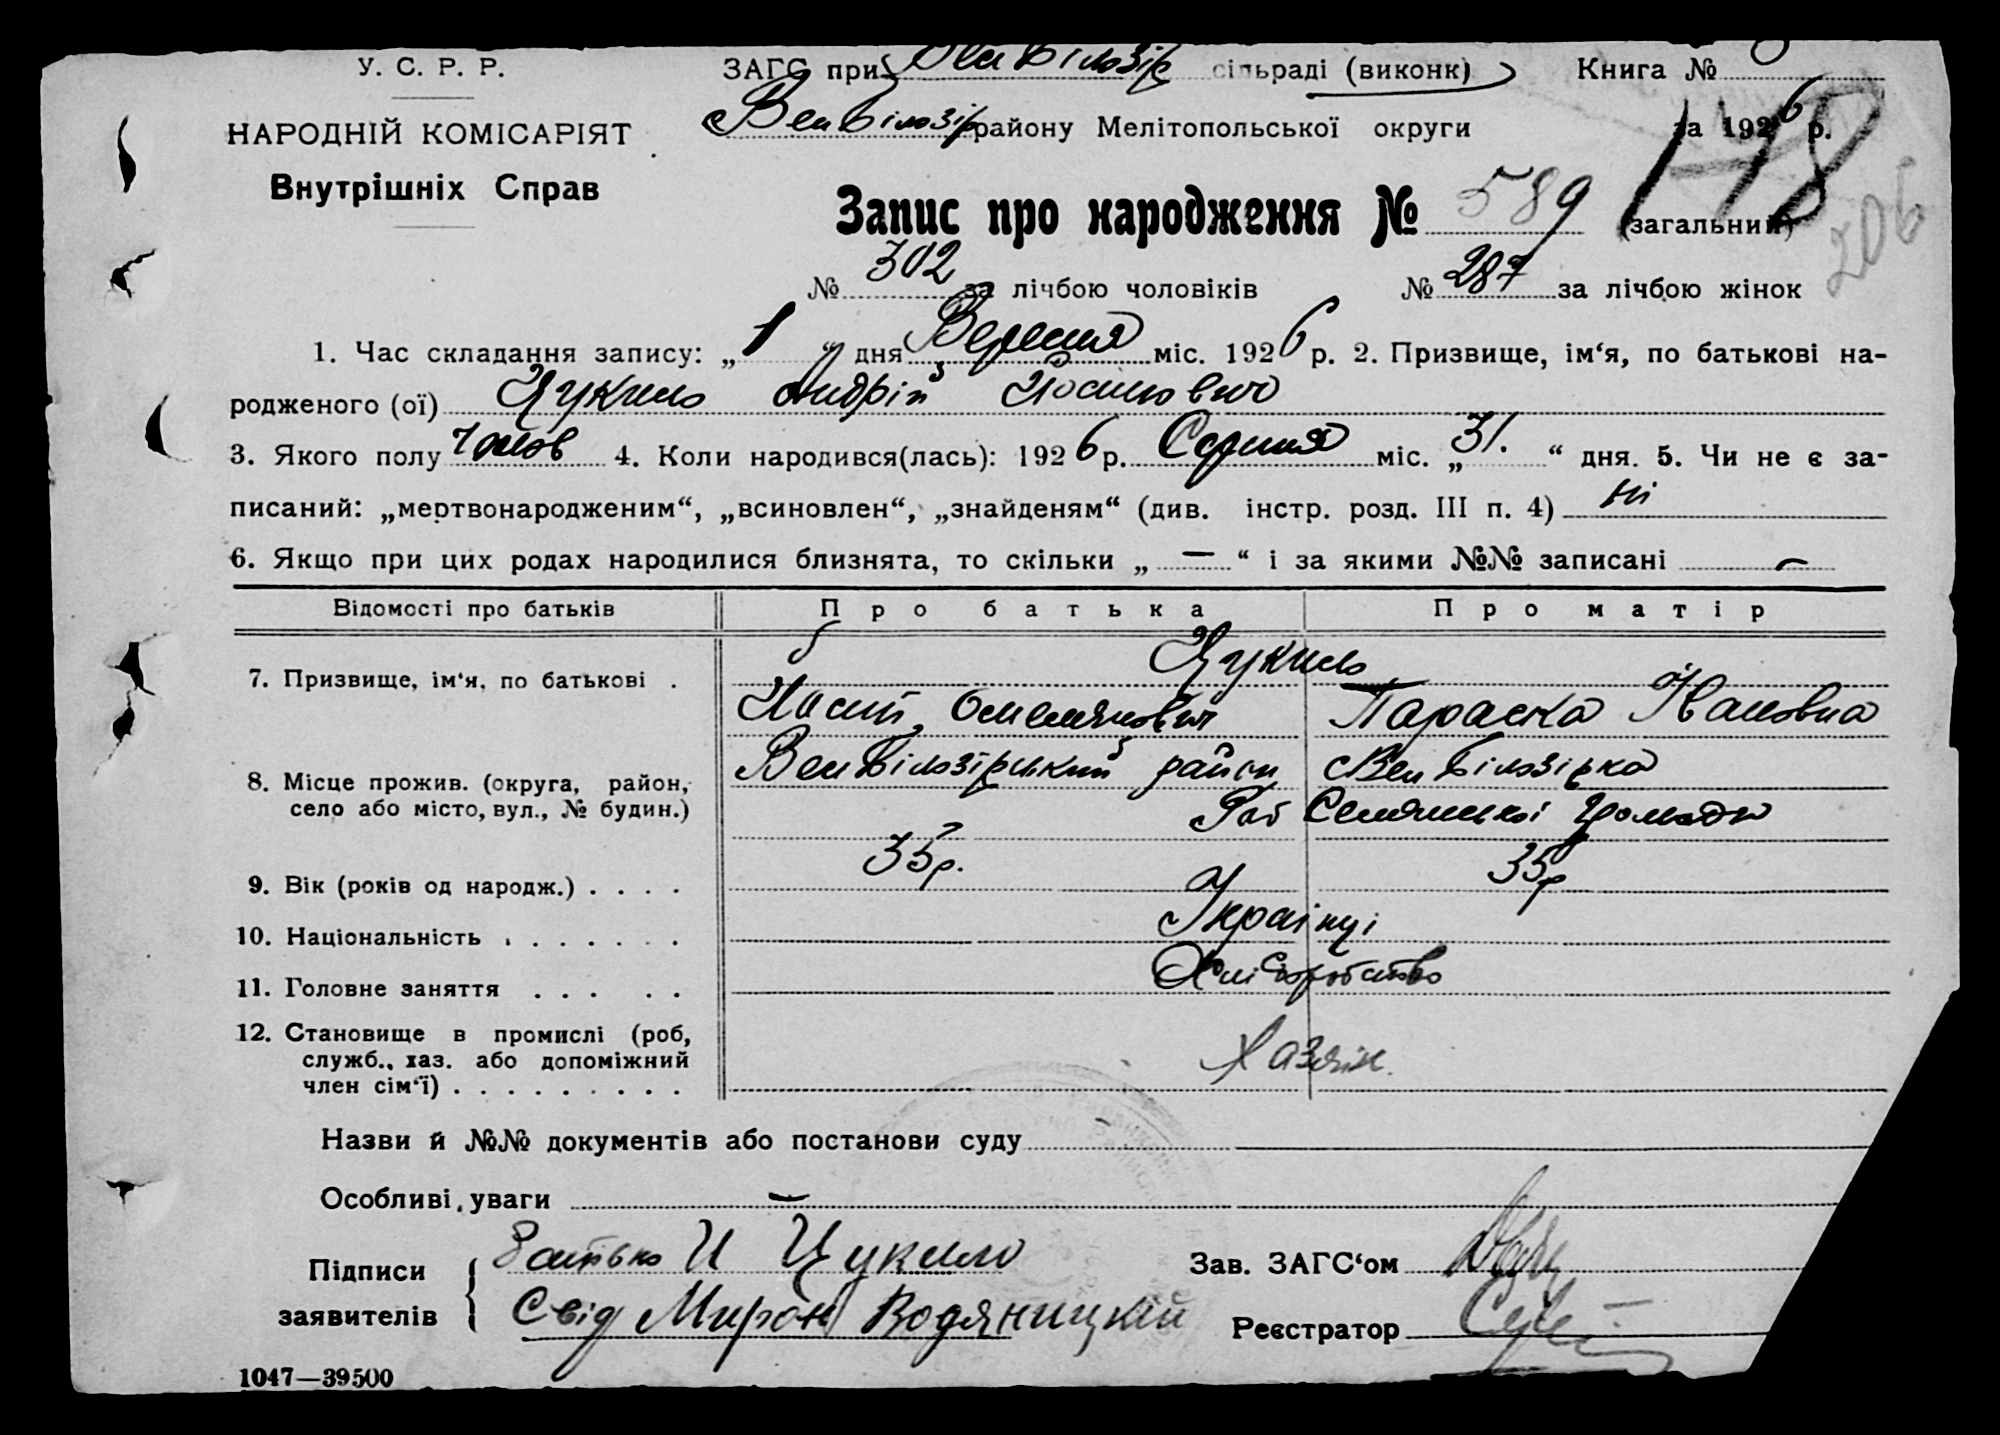 У. С. Р. Р.
НАРОДНІЙ КОМІСАРІЯТ
Внутрішніх Справ
ЗАГС при Вел Білозір сільраді (виконк)
Книга №
Вел Білозір району Мелітопольської округи за 1926 р.
148
206
Запис про народження № 589 (загальний)
№ 302 за лічбою чоловіків № 287 за лічбою жінок
1. Час складання запису: „ 1 “ дня Вересня міс. 1926 р. 2. Призвище, ім‘я, по батькові на-
родженого (ої) Цукило Андрій Йосипович
3. Якого полу Чолов 4. Коли народився(лась): 1926 р. Серпня міс. „ 31. “ дня. 5. Чи не є за-
писаний: „мертвонародженим“, „всиновлен“, „знайденям“ (див. інстр. розд. III п. 4) Ні
6. Якщо при цих родах народилися близнята, то скільки „ — “ і за якими №№ записані —
Відомості про батьків Про батька Про матір
7. Призвище, ім‘я, по батькові . Цукило
Йосип Омелянович Параска Івановна
8. Місце прожив. (округа, район, село або місто, вул., № будин.)
Вел Білозірський район Вел Білозірка
громади
9. Вік (років од народж.) . . . . 35р. 35р
10. Національність . . . . . . . Українці
11. Головне заняття . . . . . Хліборобство
12. Становище в промислі (роб,
служб., хаз. або допоміжний
член сім‘ї) . . . . . . . . . Хазяїн.
Назви й №№ документів або постанови суду
Особливі уваги —
Підписи заявителів
батько И Цукило
Свід Мирон Водяницкий
Зав. ЗАГС‘ом
Реєстратор
1047—39500